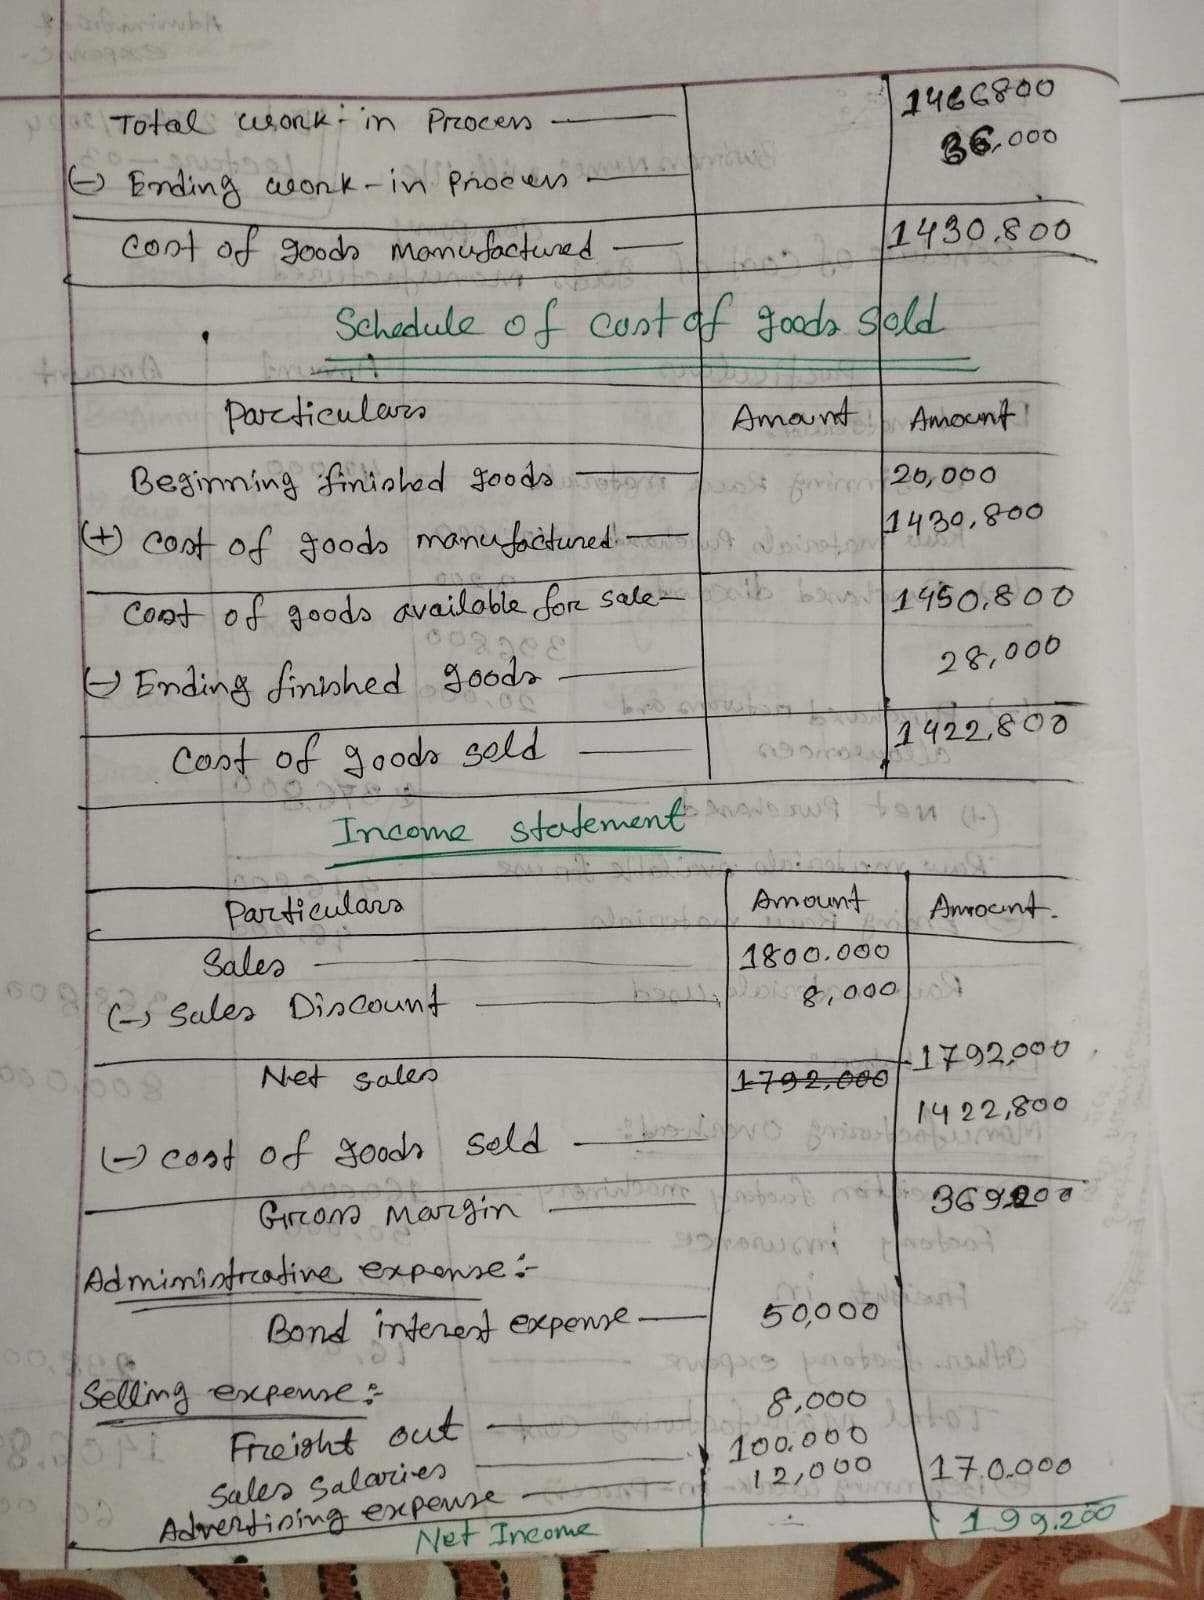 Total work-in Process 1466800
(-) Ending work-in Process 36,000
Cost of goods manufactured 1430,800
Schedule of cost of goods sold
Particulars Amount Amount
Beginning finished goods 20,000
(+) Cost of goods manufactured 1430,800
Cost of goods available for sale 1450,800
(-) Ending finished goods 28,000
Cost of goods sold 1422,800
Income statement
Particulars Amount Amount.
Sales 1800.000
(-) Sales Discount 8,000
Net sales 1792,000 1792,000
(-) cost of goods sold 1422,800
Gross Margin 369200
Administrative expense:-
Bond interest expense 50,000
Selling expense:-
Freight out 8,000
Sales Salaries 100.000
Advertising expense 12,000 170.000
Net Income 199.200